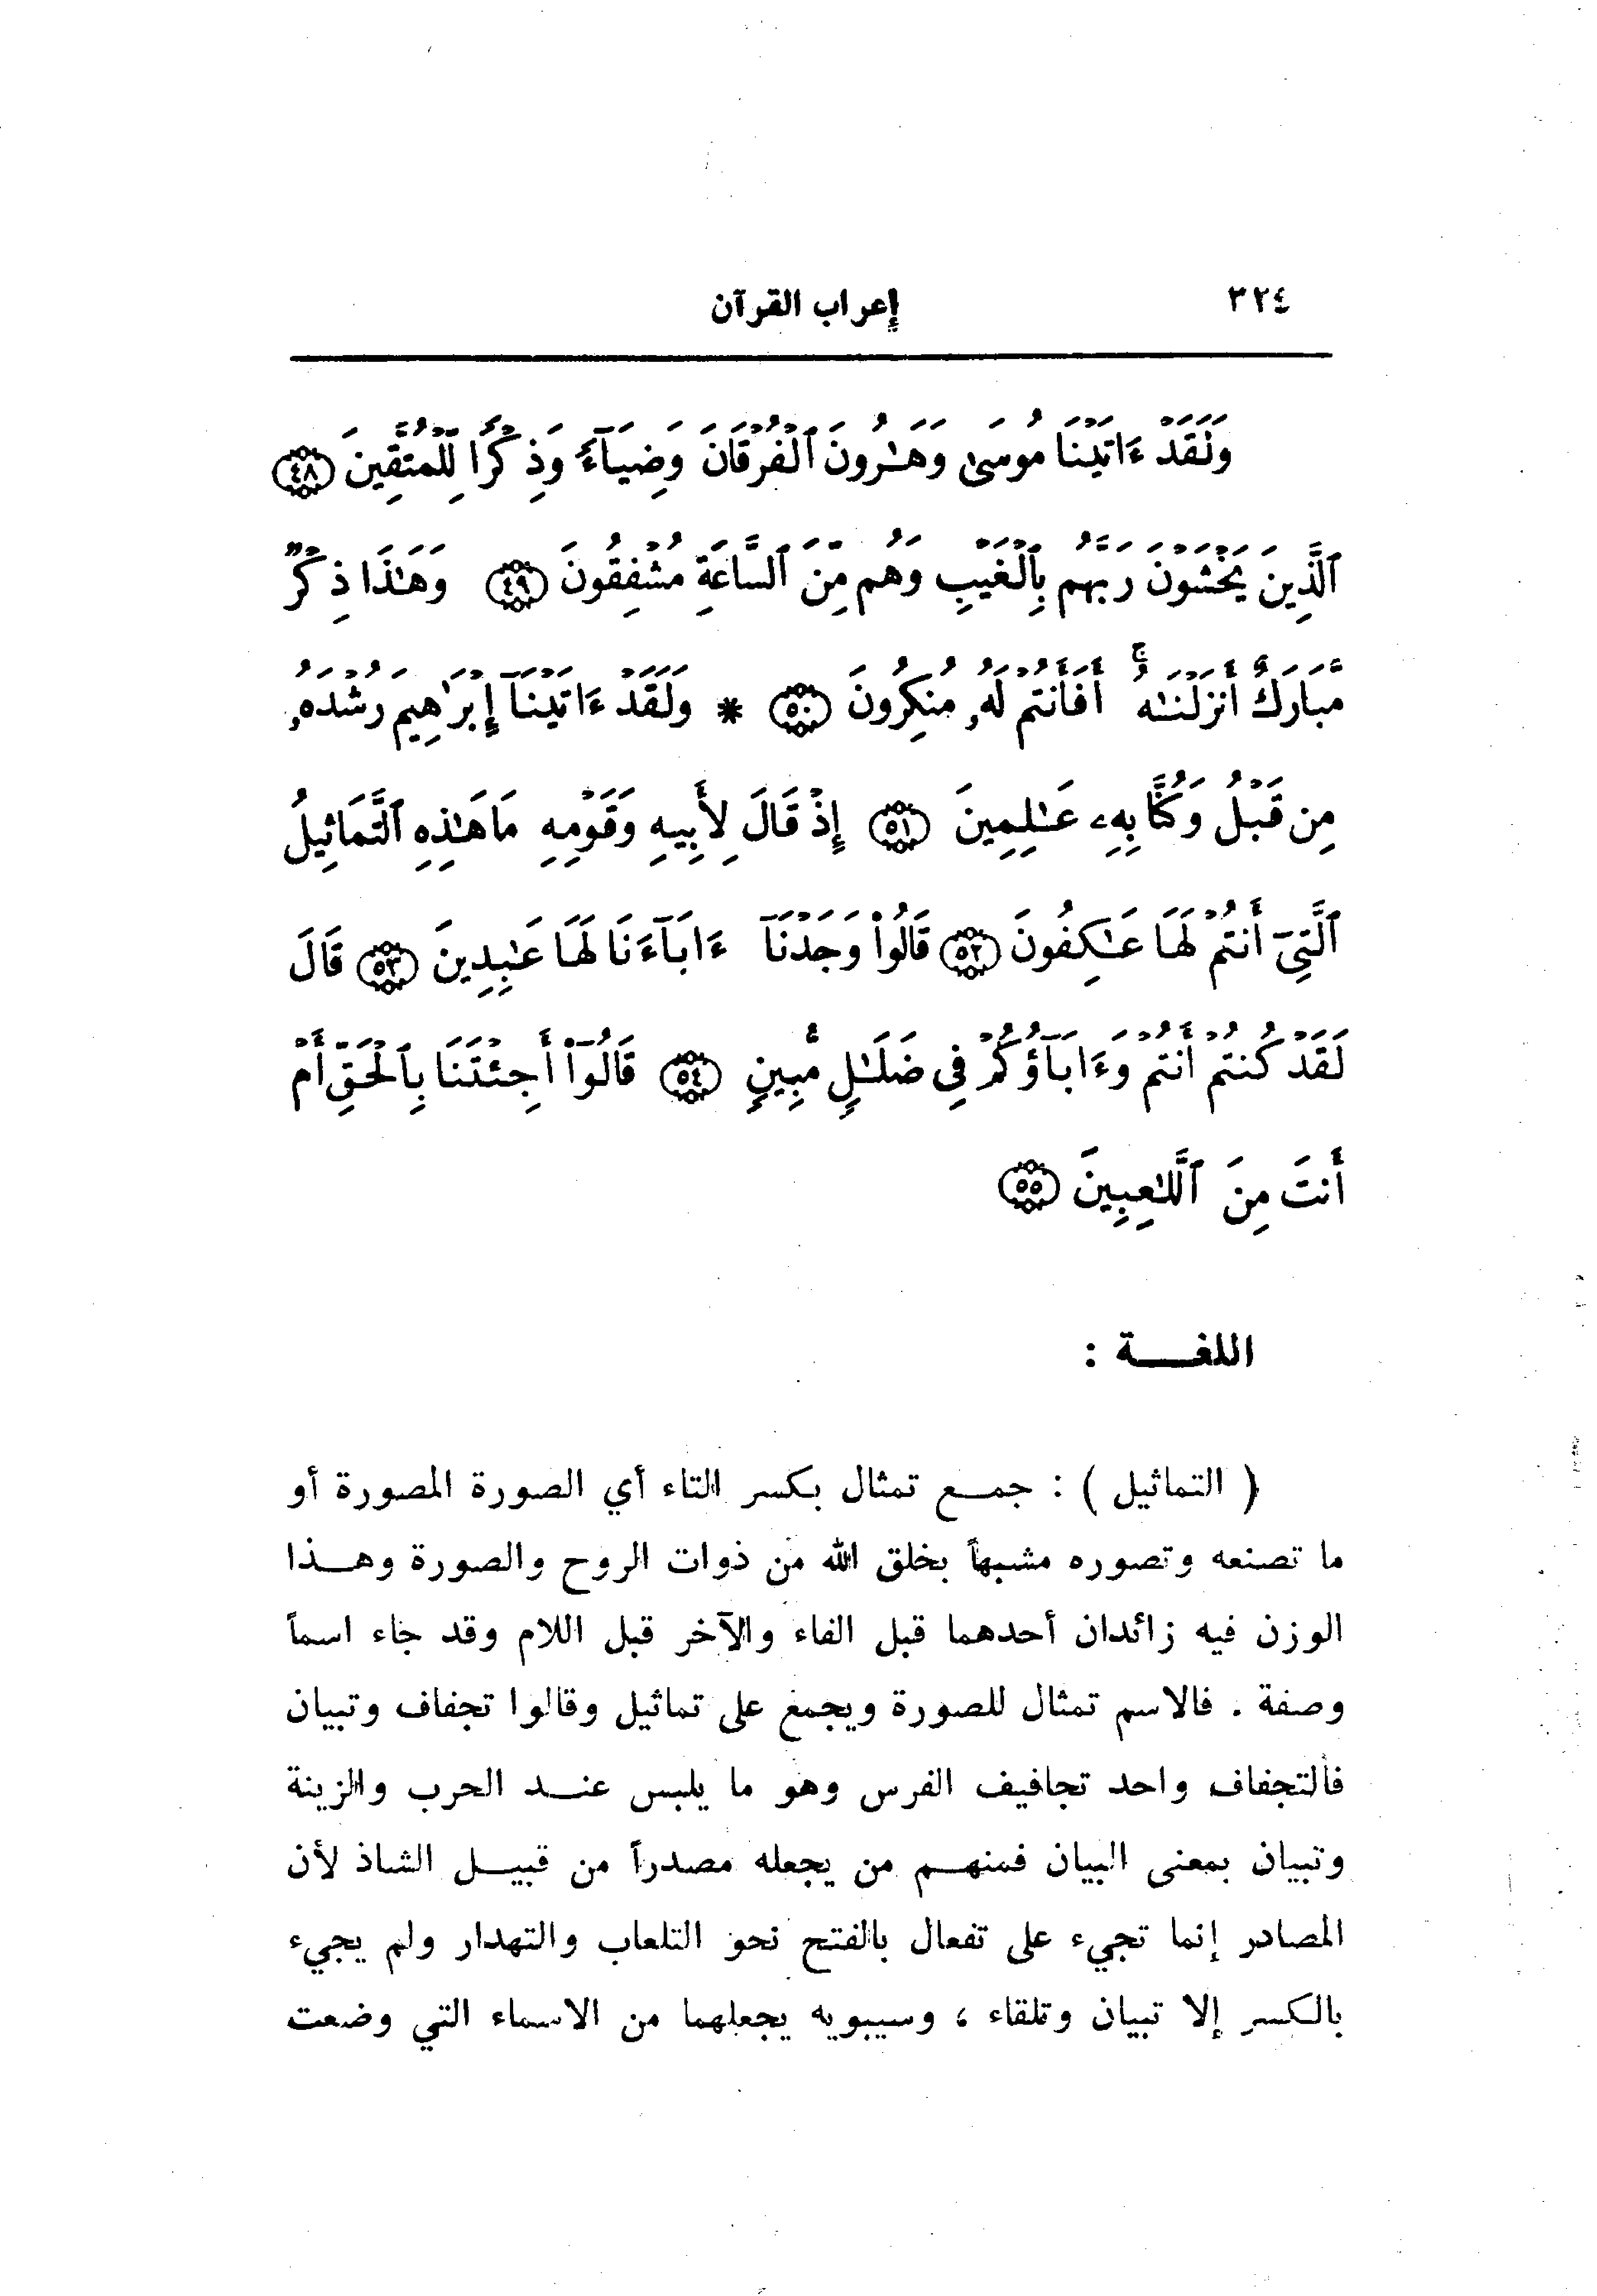 ٣٢٤ إعراب القرآن
وَلَقَدْ ءَاتَيْنَا مُوسَىٰ وَهَـٰرُونَ ٱلْفُرْقَانَ وَضِيَآءً وَذِكْرًا لِّلْمُتَّقِينَ ﴿٤٨﴾
ٱلَّذِينَ يَخْشَوْنَ رَبَّهُم بِٱلْغَيْبِ وَهُم مِّنَ ٱلسَّاعَةِ مُشْفِقُونَ ﴿٤٩﴾ وَهَـٰذَا ذِكْرٌ
مُّبَارَكٌ أَنزَلْنَـٰهُ ۚ أَفَأَنتُمْ لَهُۥ مُنكِرُونَ ﴿٥٠﴾ * وَلَقَدْ ءَاتَيْنَآ إِبْرَٰهِيمَ رُشْدَهُۥ
مِن قَبْلُ وَكُنَّا بِهِۦ عَـٰلِمِينَ ﴿٥١﴾ إِذْ قَالَ لِأَبِيهِ وَقَوْمِهِ مَا هَـٰذِهِ ٱلتَّمَاثِيلُ
ٱلَّتِىٓ أَنتُمْ لَهَا عَـٰكِفُونَ ﴿٥٢﴾ قَالُوا۟ وَجَدْنَآ ءَابَآءَنَا لَهَا عَـٰبِدِينَ ﴿٥٣﴾ قَالَ
لَقَدْ كُنتُمْ أَنتُمْ وَءَابَآؤُكُمْ فِى ضَلَـٰلٍ مُّبِينٍ ﴿٥٤﴾ قَالُوٓا۟ أَجِئْتَنَا بِٱلْحَقِّ أَمْ
أَنتَ مِنَ ٱللَّـٰعِبِينَ ﴿٥٥﴾
اللغـــة :
( التماثيل ) : جمــع تمثال بكسر التاء أي الصورة المصورة أو
ما تصنعه وتصوره مشبهاً بخلق الله من ذوات الروح والصورة وهــذا
الوزن فيه زائدان أحدهما قبل الفاء والآخر قبل اللام وقد جاء اسماً
وصفة . فالاسم تمثال للصورة ويجمع على تماثيل وقالوا تجفاف وتبيان
فالتجفاف واحد تجافيف الفرس وهو ما يلبس عنــد الحرب والزينة
وتبيان بمعنى البيان فمنهــم من يجعله مصدراً من قبيــل الشاذ لأن
المصادر إنما تجيء على تفعال بالفتح نحو التلعاب والتهدار ولم يجيء
بالكسر إلا تبيان وتلقاء ، وسيبويه يجعلهما من الاسماء التي وضعت